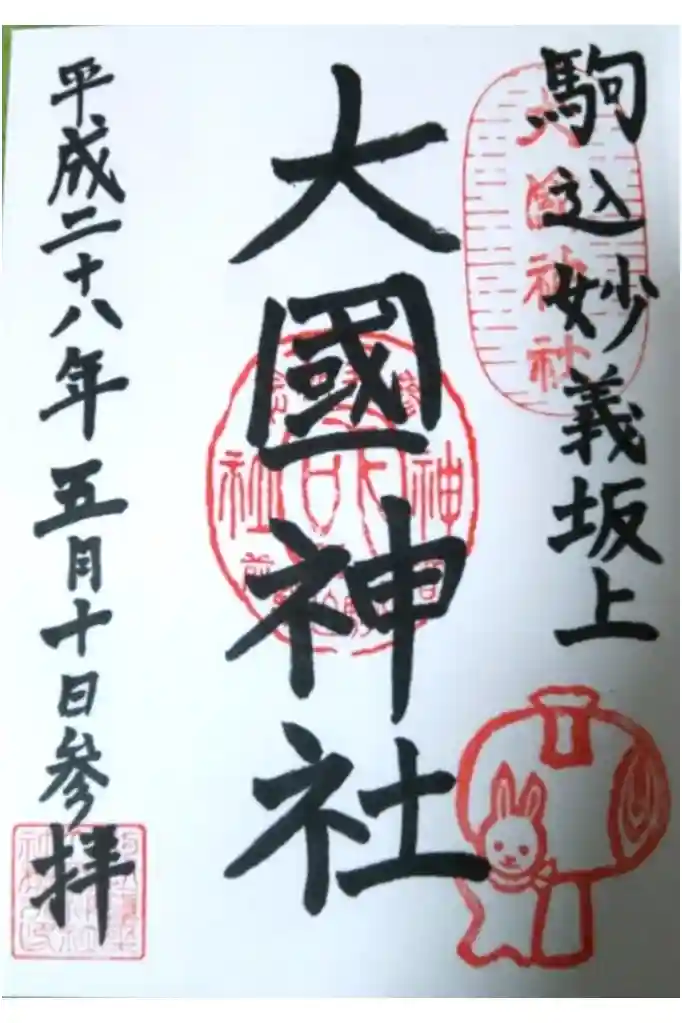 駒込妙義坂上
大國神社
大國神社
平成二十八年五月十日参拝